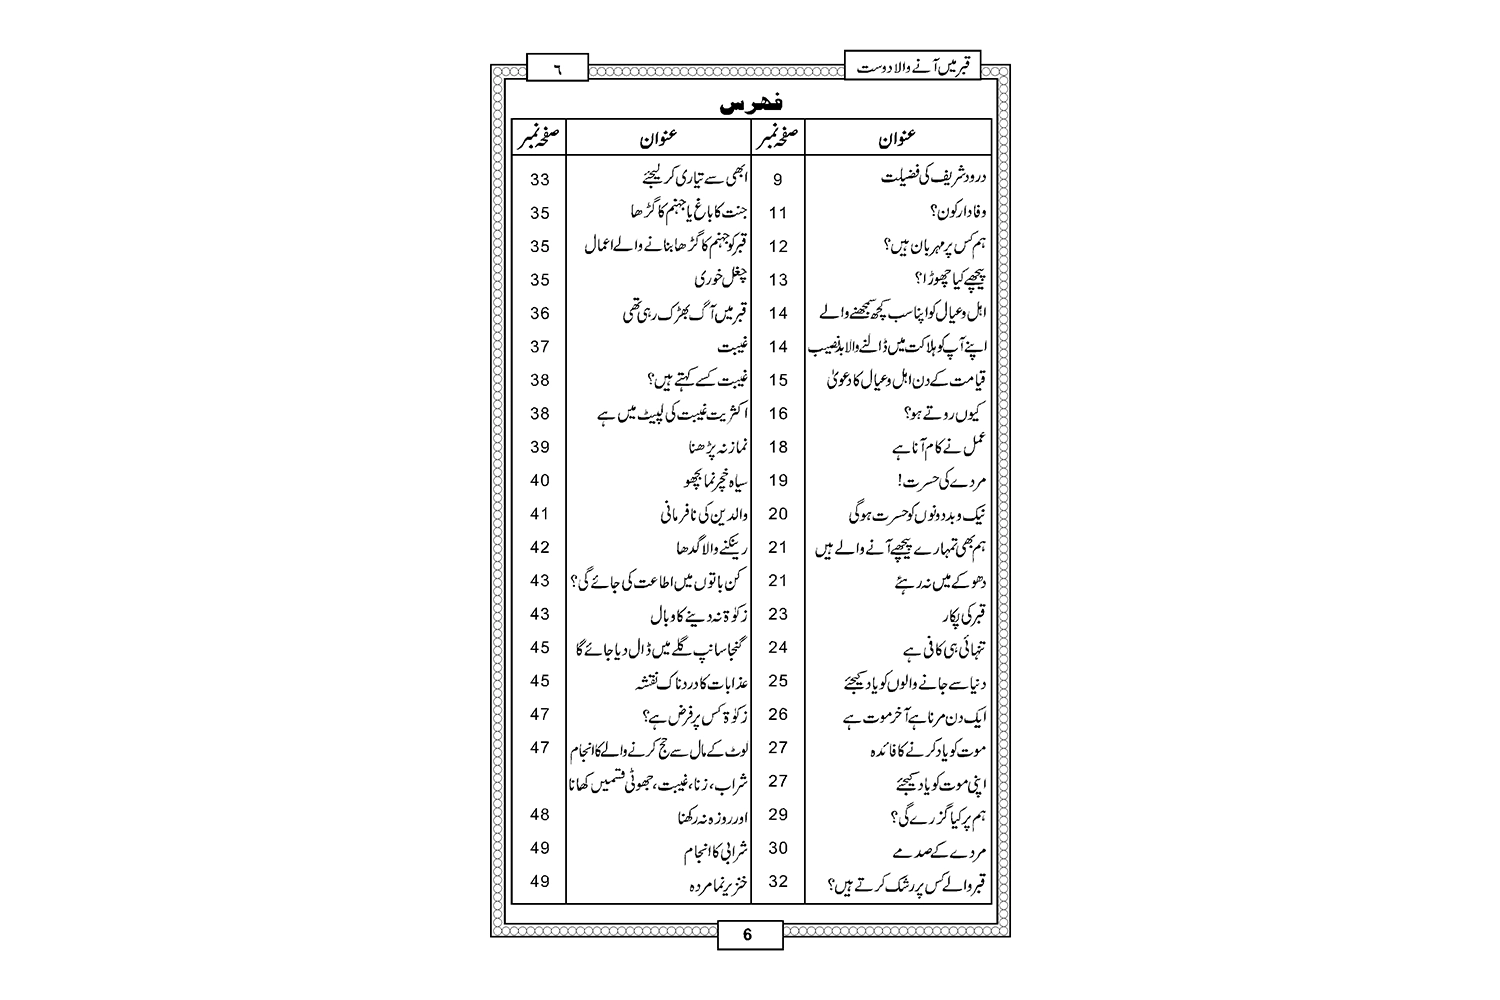 قبر میں آنے والا دوست ٦
فہرس
عنوان صفحہ نمبر عنوان صفحہ نمبر
درود شریف کی فضیلت 9 ابھی سے تیاری کر لیجئے 33
وفادار کون؟ 11 جنت کا باغ یا جہنم کا گڑھا 35
ہم کس پر مہربان ہیں؟ 12 قبر کو جہنم کا گڑھا بنانے والے اعمال 35
پیچھے کیا چھوڑا؟ 13 چغل خوری 35
اہل و عیال کو اپنا سب کچھ سمجھنے والے 14 قبر میں آگ بھڑک رہی تھی 36
اپنے آپ کو ہلاکت میں ڈالنے والا بدنصیب 14 غیبت 37
قیامت کے دن اہل و عیال کا دعویٰ 15 غیبت کسے کہتے ہیں؟ 38
کیوں روتے ہو؟ 16 اکثریت غیبت کی لپیٹ میں ہے 38
عمل نے کام آنا ہے 18 نماز نہ پڑھنا 39
مردے کی حسرت! 19 سیاہ خچر نما بچھو 40
نیک و بد دونوں کو حسرت ہوگی 20 والدین کی نافرمانی 41
ہم بھی تمہارے پیچھے آنے والے ہیں 21 رینکنے والا گدھا 42
دھوکے میں نہ رہئے 21 کن باتوں میں اطاعت کی جائے گی؟ 43
قبر کی پکار 23 زکوٰۃ نہ دینے کا وبال 43
تنہائی ہی کافی ہے 24 گنجا سانپ گلے میں ڈال دیا جائے گا 45
دنیا سے جانے والوں کو یاد کیجئے 25 عذابات کا دردناک نقشہ 45
ایک دن مرنا ہے آخر موت ہے 26 زکوٰۃ کس پر فرض ہے؟ 47
موت کو یاد کرنے کا فائدہ 27 لوٹ کے مال سے حج کرنے والے کا انجام 47
اپنی موت کو یاد کیجئے 27 شراب، زنا، غیبت، جھوٹی قسمیں کھانا
ہم پر کیا گزرے گی؟ 29 اور روزہ نہ رکھنا 48
مردے کے صدمے 30 شرابی کا انجام 49
قبر والے کس پر رشک کرتے ہیں؟ 32 خنزیر نما مردہ 49
6